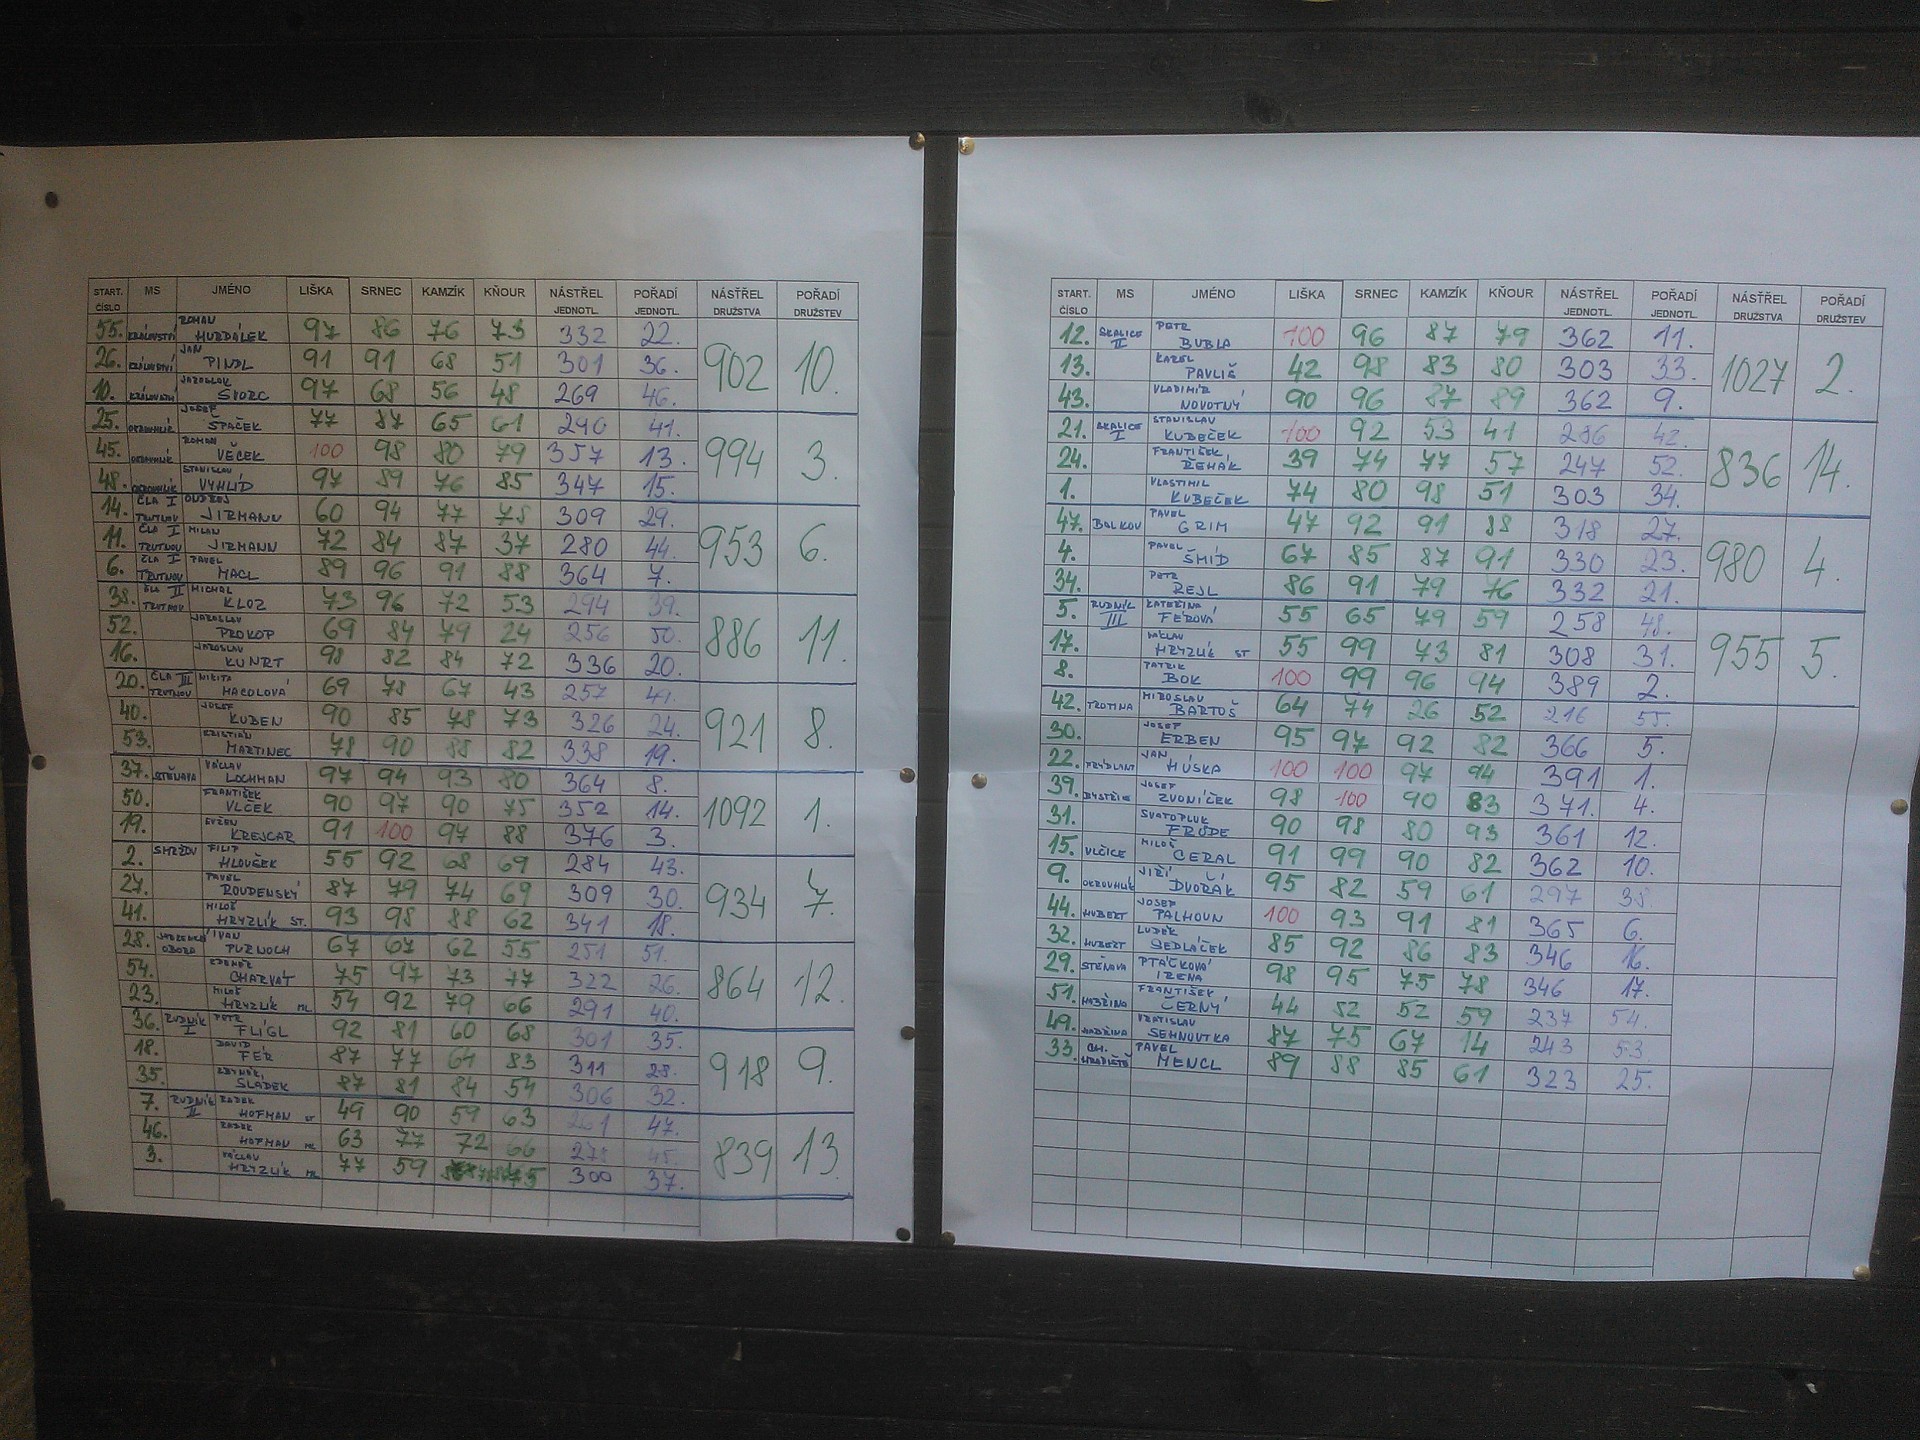 START. ČÍSLO MS JMÉNO LIŠKA SRNEC KAMZÍK KŇOUR NÁSTŘEL JEDNOTL. POŘADÍ JEDNOTL. NÁSŤŘEL DRUŽSTVA POŘADÍ DRUŽSTEV
55. KRÁLOVSTVÍ ROMAN HURDÁLEK 97 86 76 73 332 22. 902 10.
26. KRÁLOVSTVÍ JAN PINDL 91 91 68 51 301 36.
10. KRÁLOVSTVÍ JAROSLAV ŠVORC 97 68 56 48 269 46.
25. OKROUHLÍK JOSEF ŠPAČEK 77 87 65 61 290 41. 994 3.
45. OKROUHLÍK ROMAN VĚČEK 100 98 80 79 357 13.
48. OKROUHLÍK STANISLAV VYHLÍD 97 89 76 85 347 15.
14. ČLA I TRUTNOV ONDŘEJ JIRMANN 60 94 77 78 309 29. 953 6.
11. ČLA I TRUTNOV MILAN JIRMANN 72 84 87 37 280 44.
6. ČLA I TRUTNOV PAVEL MACL 89 96 91 88 364 7.
38. ČLA II TRUTNOV MICHAL KLOZ 73 96 72 53 294 39. 886 11.
52. JAROSLAV PROKOP 69 84 79 24 256 50.
16. JAROSLAV KUNRT 98 82 84 72 336 20.
20. ČLA III TRUTNOV NIKITA MACOLOVÁ 69 78 67 43 257 921 8.
40. JOSEF KUBEN 90 85 78 73 326 24.
53. KRISTIÁN MARTINEC 78 90 88 82 338 19.
37. STĚNAVA VÁCLAV LOCHMAN 97 94 93 80 364 8. 1092 1.
50. FRANTIŠEK VLČEK 90 97 90 75 352 14.
19. EVŽEN KREJCAR 91 100 97 88 376 3.
2. SMRŽOV FILIP HLOUŠEK 55 92 68 69 284 43. 934 7.
27. PAVEL ROUDENSKÝ 87 79 74 69 309 30.
41. MILOŠ HRYZLÍK ST. 93 98 88 62 341 18.
28. OBORA IVAN PURNOCH 67 67 62 55 251 51. 864 12.
54. ZDENĚK CHARVÁT 75 97 73 77 322 26.
23. MILOŠ HRYZLÍK ML 54 92 79 66 291 40.
36. RUDNÍK I PETR FLÍGL 92 81 60 68 301 35. 918 9.
18. DAVID FÉR 87 77 64 83 311 28.
35. ZBYNĚK SLÁDEK 87 81 84 54 306 32.
7. RUDNÍK II RADEK HOFMAN ST 49 90 59 63 261 47. 839 13.
46. RADEK HOFMAN ML 63 77 72 66 278 45.
3. VÁCLAV HRYZLÍK ML 77 59 300 37.
START. ČÍSLO MS JMÉNO LIŠKA SRNEC KAMZÍK KŇOUR NÁSTŘEL JEDNOTL. POŘADÍ JEDNOTL. NÁSŤŘEL DRUŽSTVA POŘADÍ DRUŽSTEV
12. SKALICE II PETR BUBLA 100 96 87 79 362 11. 1027 2.
13. KAREL PAVLIŠ 42 98 83 80 303 33.
43. VLADIMÍR NOVOTNÝ 90 96 87 89 362 9.
21. SKALICE I STANISLAV KUBEČEK 100 92 53 41 286 42. 836 14.
24. FRANTIŠEK ŘEHÁK 39 74 77 57 247 52.
1. VLASTIMIL KUBEČEK 74 80 98 51 303 34.
47. BOLKOV PAVEL GRIM 47 92 91 88 318 27. 980 4.
4. PAVEL ŠMÍD 67 85 87 91 330 23.
34. PETR REJL 86 91 79 76 332 21.
5. RUDNÍK III KATEŘINA FÉROVÁ 55 65 79 59 258 48. 955 5.
17. VÁCLAV HRYZLÍK ST 55 99 73 81 308 31.
8. PATRIK BOK 100 99 96 94 389 2.
42. TROTINA MIROSLAV BARTOŠ 64 74 26 52 216 55.
30. JOSEF ERBEN 95 97 92 82 366 5.
22. FRÝDLANT JAN HUSKA 100 100 97 94 391 1.
39. BYSTŘICE JOSEF ZVONÍČEK 98 100 90 83 371. 4.
31. SVATOPLUK FRÜDE 90 98 80 93 361 12.
15. VLČICE MILOŠ CERAL 91 99 90 82 362 10.
9. OKROUHLÍK JIŘÍ DVOŘÁK 95 82 59 61 297 38.
44. HUBERT JOSEF PALHOUN 100 93 91 81 365 6.
32. HUBERT LUDĚK SEDLÁČEK 85 92 86 83 346 16.
29. STĚNAVA PTÁČKOVÁ IRENA 98 95 75 78 346 17.
51. HABŘINA FRANTIŠEK ČERNÝ 44 82 52 59 237 54.
49. HABŘINA VRATISLAV SEHNOUTKA 87 75 67 14 243 53.
33. CH. HRADIŠTĚ PAVEL MENCL 89 88 85 61 323 25.